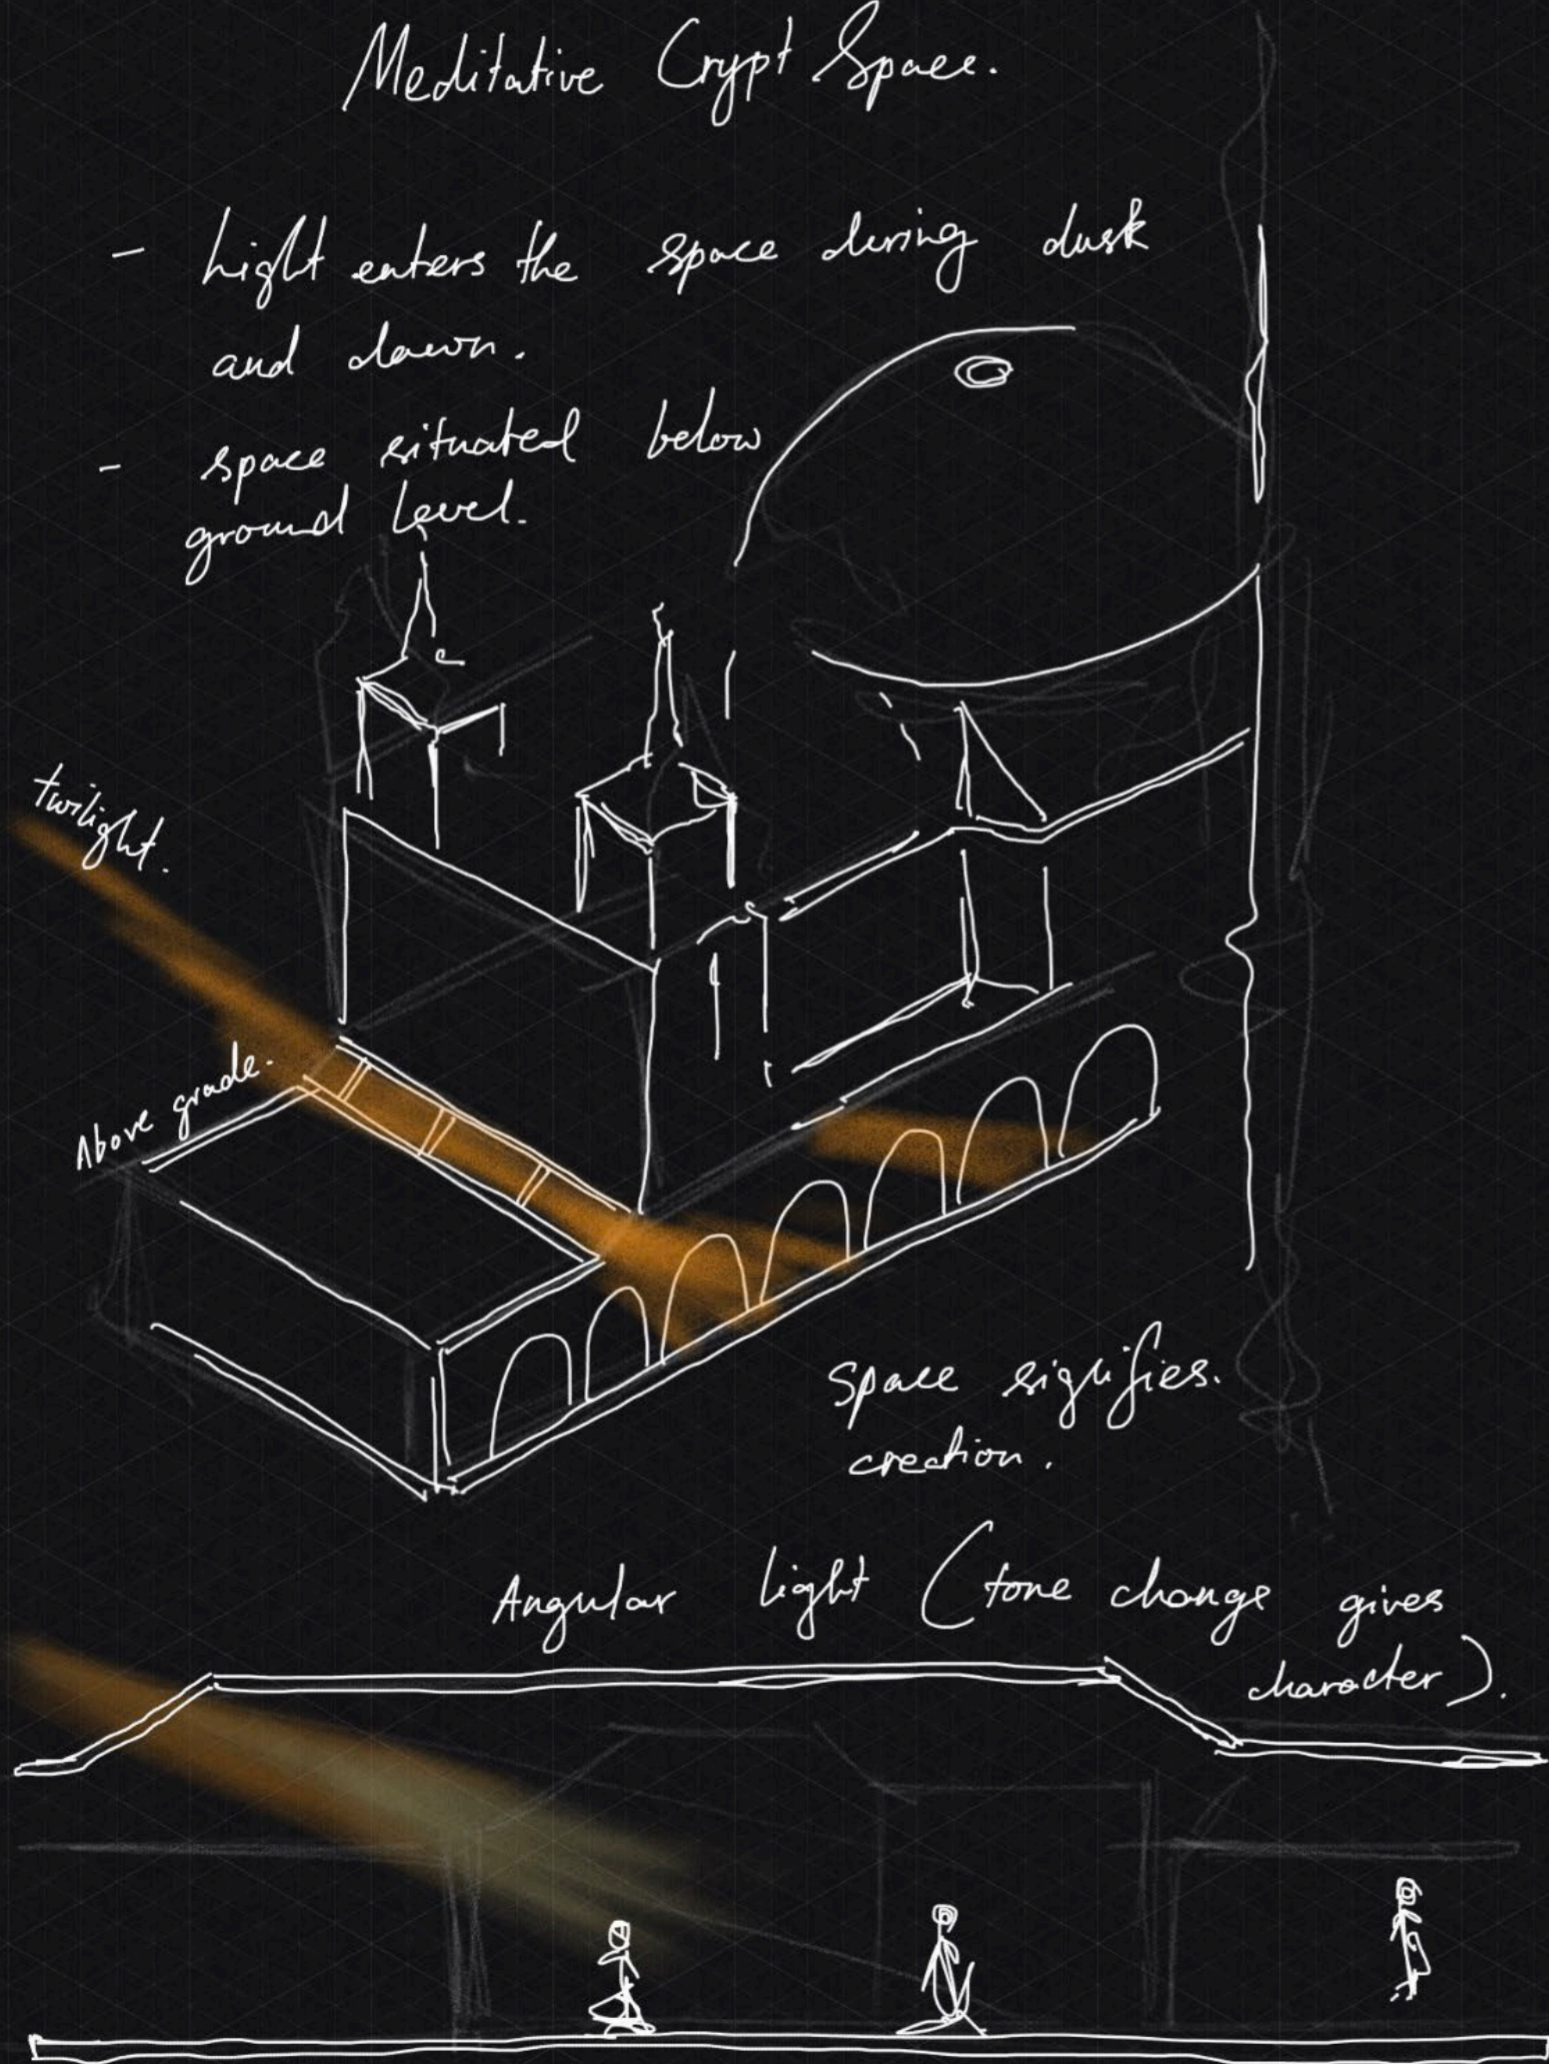 Meditative Crypt Space.
- Light enters the space during dusk
and dawn.
- space situated below
ground level.
twilight.
Above grade.
Space signifies.
creation.
Angular light (tone change gives
character).